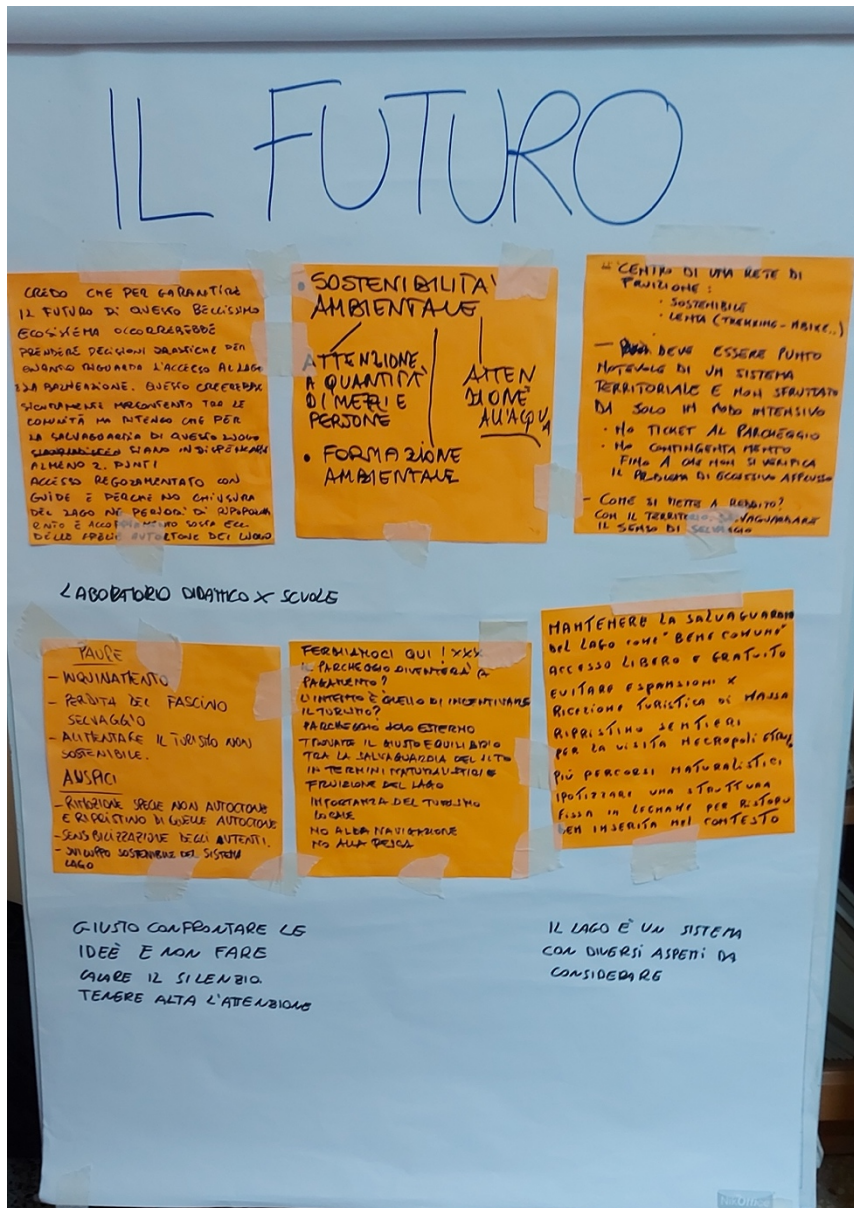 IL FUTURO
CREDO CHE PER GARANTIRE
IL FUTURO DI QUESTO BELLISSIMO
ECOSISTEMA OCCORREREBBE
PRENDERE DECISIONI DRASTICHE PER
QUANTO RIGUARDA L'ACCESSO AL LAGO
E LA BALNEAZIONE. QUESTO CREEREBBE
SICURAMENTE MALCONTENTO TRA LE
COMUNITÀ MA RITENGO CHE PER
LA SALVAGUARDIA DI QUESTO LUOGO
SIANO INDISPENSABILI
ALMENO 2 PUNTI
ACCESSO REGOLAMENTATO CON
GUIDE E PERCHE NO CHIUSURA
DEL LAGO NEI PERIODI DI RIPOPOLAM
ENTO E ACCOPPIAMENTO SOSTA ECC.
DELLE SPECIE AUTOCTONE DEL LUOGO
• SOSTENIBILITA'
AMBIENTALE
ATTENZIONE
A QUANTITÀ
DI MEZZI E
PERSONE
ATTEN
ZIONE
ALL'ACQUA
• FORMAZIONE
AMBIENTALE
- CENTRO DI UNA RETE DI
FRUIZIONE :
• SOSTENIBILE
• LENTA (TREKKING - MBIKE..)
- DEVE ESSERE PUNTO
NOTEVOLE DI UN SISTEMA
TERRITORIALE E NON SFRUTTATO
DA SOLO IN MODO INTENSIVO
• NO TICKET AL PARCHEGGIO
• NO CONTINGENTAMENTO
FINO A CHE NON SI VERIFICA
IL PROBLEMA DI ECCESSIVO AFFLUSSO
- COME SI METTE A REDDITO?
CON IL TERRITORIO. SALVAGUARDARE
IL SENSO DI SELVAGGIO
LABORATORIO DIDATTICO X SCUOLE
PAURE
- INQUINAMENTO
- PERDITA DEL FASCINO
SELVAGGIO
- ALIMENTARE IL TURISMO NON
SOSTENIBILE.
AUSPICI
- RIMOZIONE SPECIE NON AUTOCTONE
E RIPRISTINO DI QUELLE AUTOCTONE
- SENSIBILIZZAZIONE DEGLI UTENTI.
- SVILUPPO SOSTENIBILE DEL SISTEMA
LAGO
FERMIAMOCI QUI ! XXX
IL PARCHEGGIO DIVENTERÀ A
PAGAMENTO?
L'INTENTO È QUELLO DI INCENTIVARE
IL TURISMO?
PARCHEGGIO SOLO ESTERNO
TROVATE IL GIUSTO EQUILIBRIO
TRA LA SALVAGUARDIA DEL SITO
IN TERMINI NATURALISTICI E
FRUIZIONE DEL LAGO
IMPORTANZA DEL TURISMO
LOCALE
NO ALLA NAVIGAZIONE
NO ALLA PESCA
MANTENERE LA SALVAGUARDIA
DEL LAGO COME "BENE COMUNE"
ACCESSO LIBERO E GRATUITO
EVITARE ESPANSIONI X
RICEZIONE TURISTICA DI MASSA
RIPRISTINO SENTIERI
PER LA VISITA NECROPOLI ETRUS.
PIÙ PERCORSI NATURALISTICI
IPOTIZZARE UNA STRUTTURA
FISSA IN LEGNAME PER RISTORO
BEN INSERITA NEL CONTESTO
GIUSTO CONFRONTARE LE
IDEÈ E NON FARE
CALARE IL SILENZIO.
TENERE ALTA L'ATTENZIONE
IL LAGO È UN SISTEMA
CON DIVERSI ASPETTI DA
CONSIDERARE